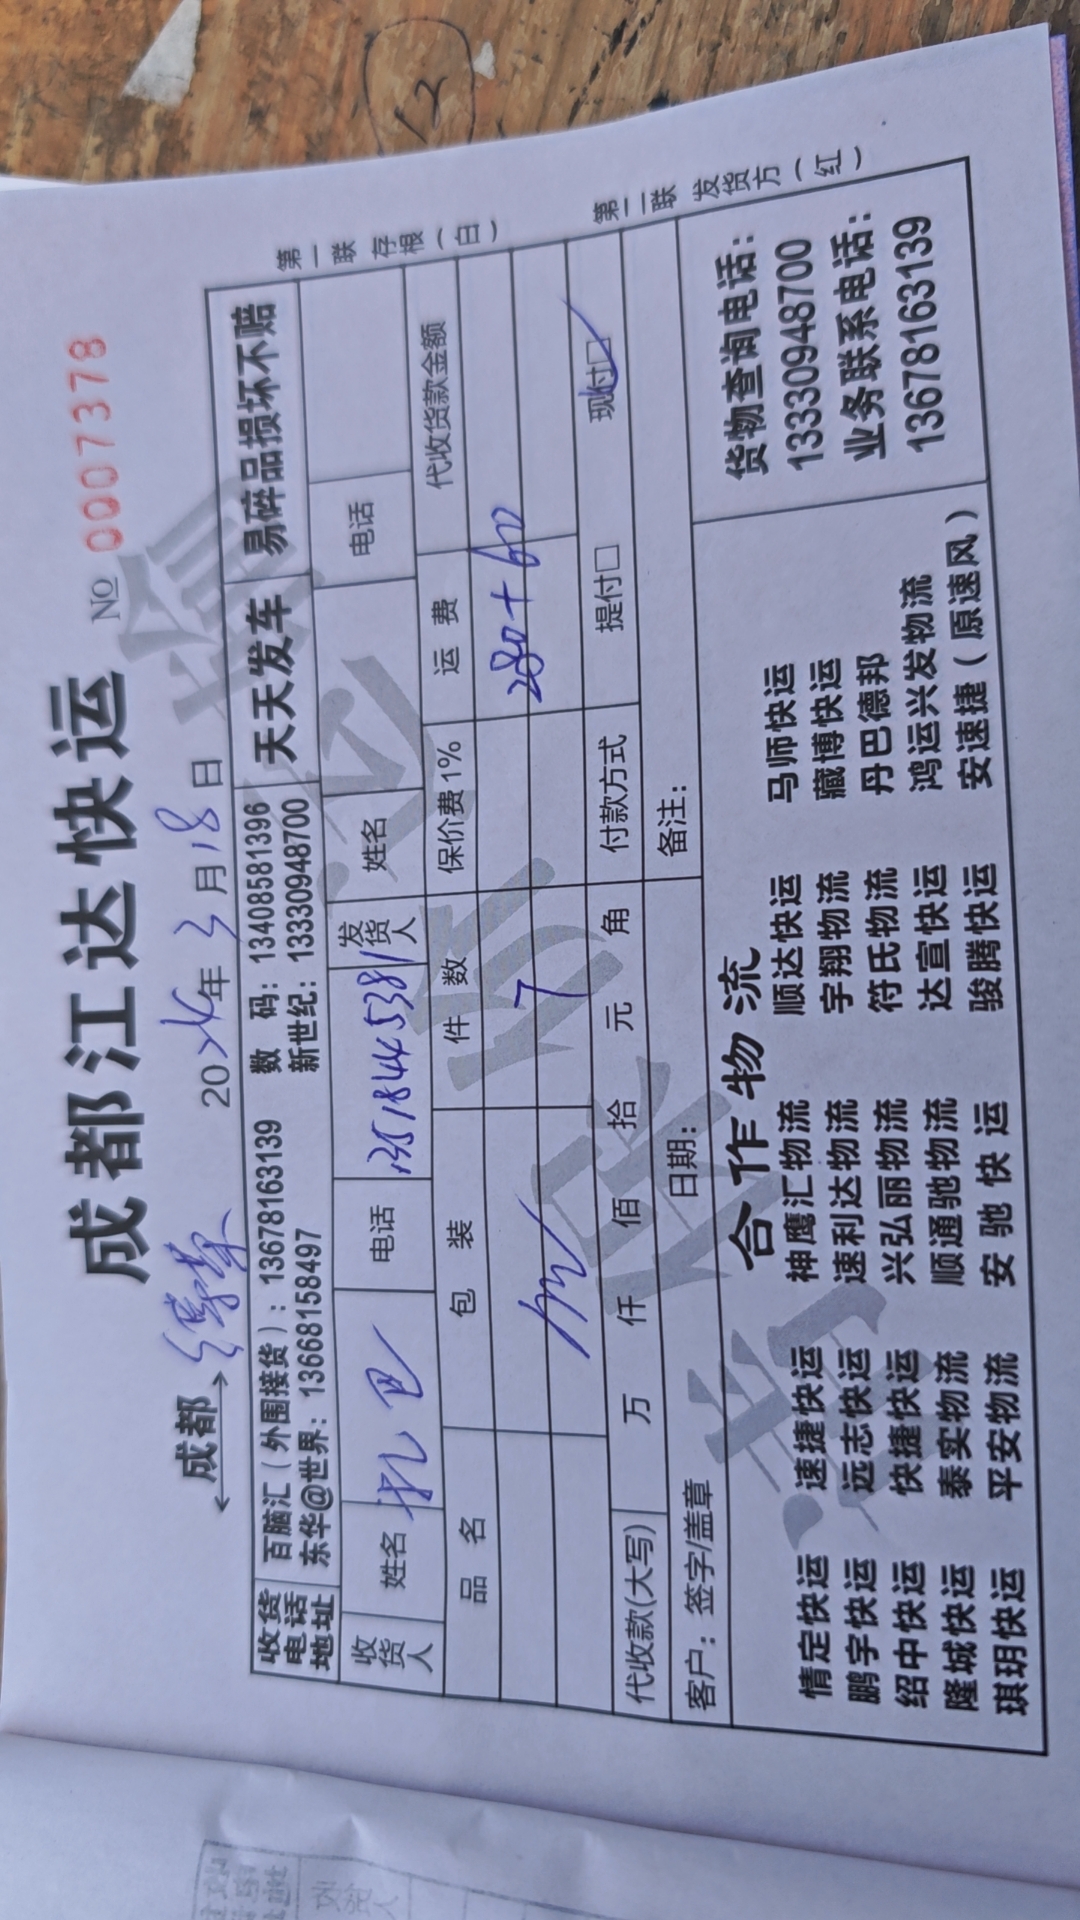 成都江达快运
№ 0007378
成都 2024年3月18日
收货电话地址
百脑汇（外围接货）：13678163139 数码：13408581396
东华@世界：13668158497 新世纪：13330948700
天天发车 易碎品损坏不赔
收货人 姓名 扎巴 电话 发货人 姓名 电话
品名 包装 件数 保价费1% 运费 代收货款金额
280+600
7
代收款(大写) 万 仟 佰 拾 元 角 付款方式 提付□ 现付□
客户：签字/盖章 日期： 备注：
合作物流
情定快运 速捷快运 神鹰汇物流 顺达快运 马师快运
鹏宇快运 远志快运 速利达物流 宇翔物流 藏博快运
绍中快运 快捷快运 兴弘丽物流 符氏物流 丹巴德邦
隆城快运 泰实物流 顺通驰物流 达宣快运 鸿运兴发物流
琪玥快运 平安物流 安驰快运 骏腾快运 安速捷（原速风）
货物查询电话：
13330948700
业务联系电话：
13678163139
第一联 存根（白）
第二联 发货方（红）